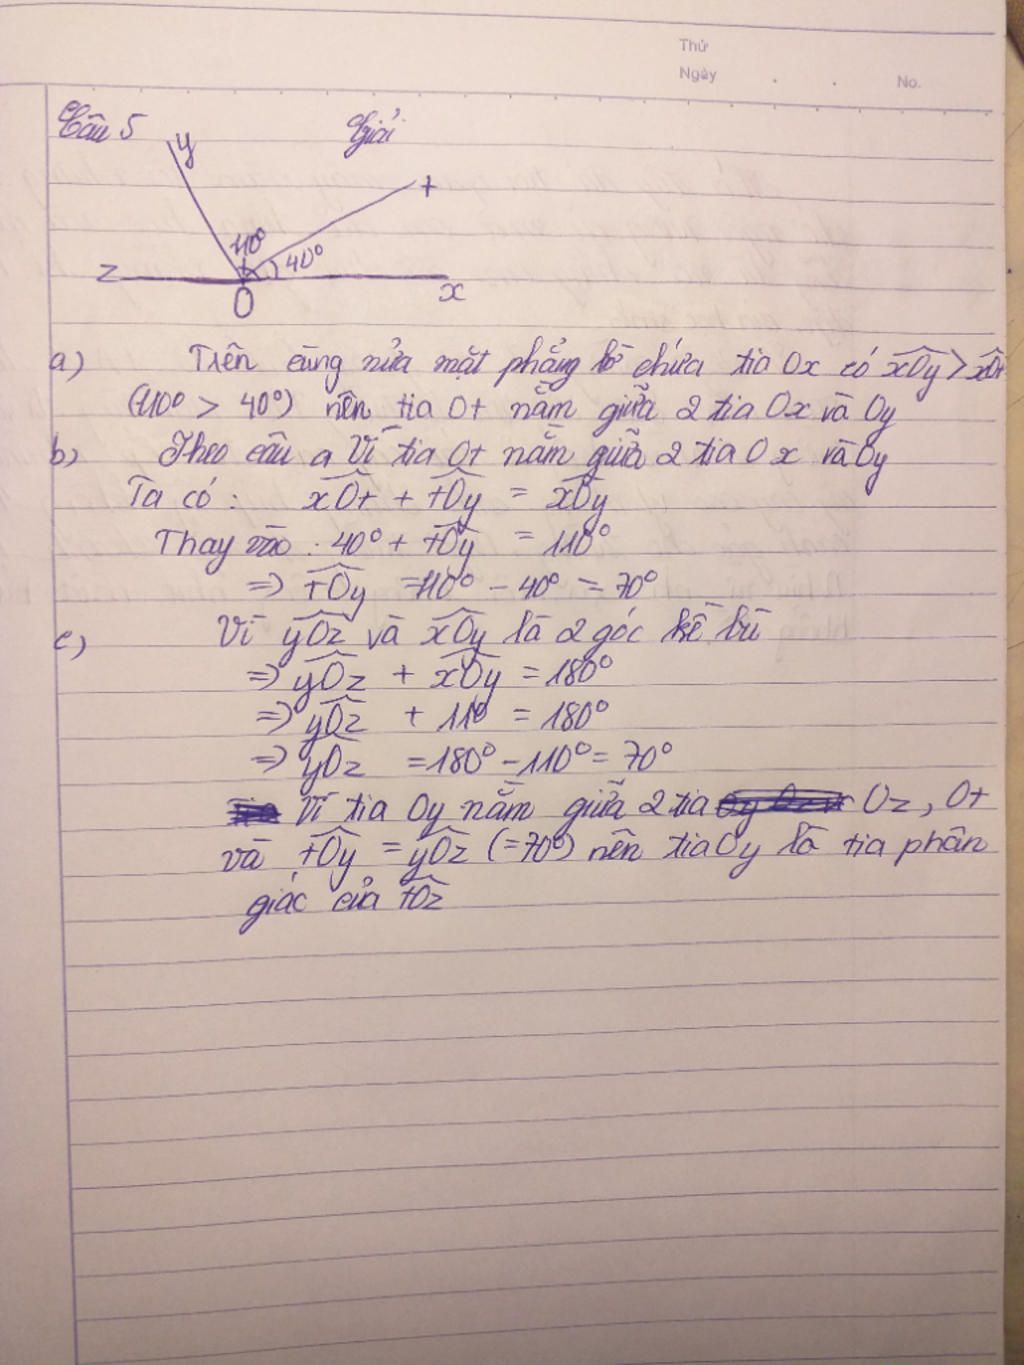 Thứ
Ngày . . No.
Câu 5 Giải
y
t
110° 40°
z
O x
a) Trên cùng nửa mặt phẳng bờ chứa tia Ox có xOy > xOt
(110° > 40°) nên tia Ot nằm giữa 2 tia Ox và Oy
b) Theo câu a Vì tia Ot nằm giữa 2 tia Ox và Oy
Ta có: xOt + tOy = xOy
Thay vào : 40° + tOy = 110°
=> tOy = 110° - 40° = 70°
c) Vì yOz và xOy là 2 góc kề bù
=> yOz + xOy = 180°
=> yOz + 110 = 180°
=> yOz = 180° - 110° = 70°
Vì tia Oy nằm giữa 2 tia Oz, Ot
và tOy = yOz (=70°) nên tia Oy là tia phân
giác của tOz